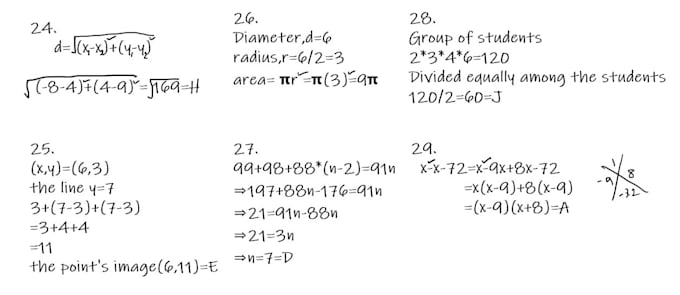 24.
d=√(x₁-x₂)²+(y₁-y₂)²
√(-8-4)²+(4-9)²=√169=H
26.
Diameter,d=6
radius,r=6/2=3
area= πr²=π(3)²=9π
28.
Group of students
2*3*4*6=120
Divided equally among the students
120/2=60=J
25.
(x,y)=(6,3)
the line y=7
3+(7-3)+(7-3)
=3+4+4
=11
the point's image(6,11)=E
27.
99+98+88*(n-2)=91n
⇒197+88n-176=91n
⇒21=91n-88n
⇒21=3n
⇒n=7=D
29.
x²-x-72=x²-9x+8x-72
=x(x-9)+8(x-9)
=(x-9)(x+8)=A
1
-9 8
-32